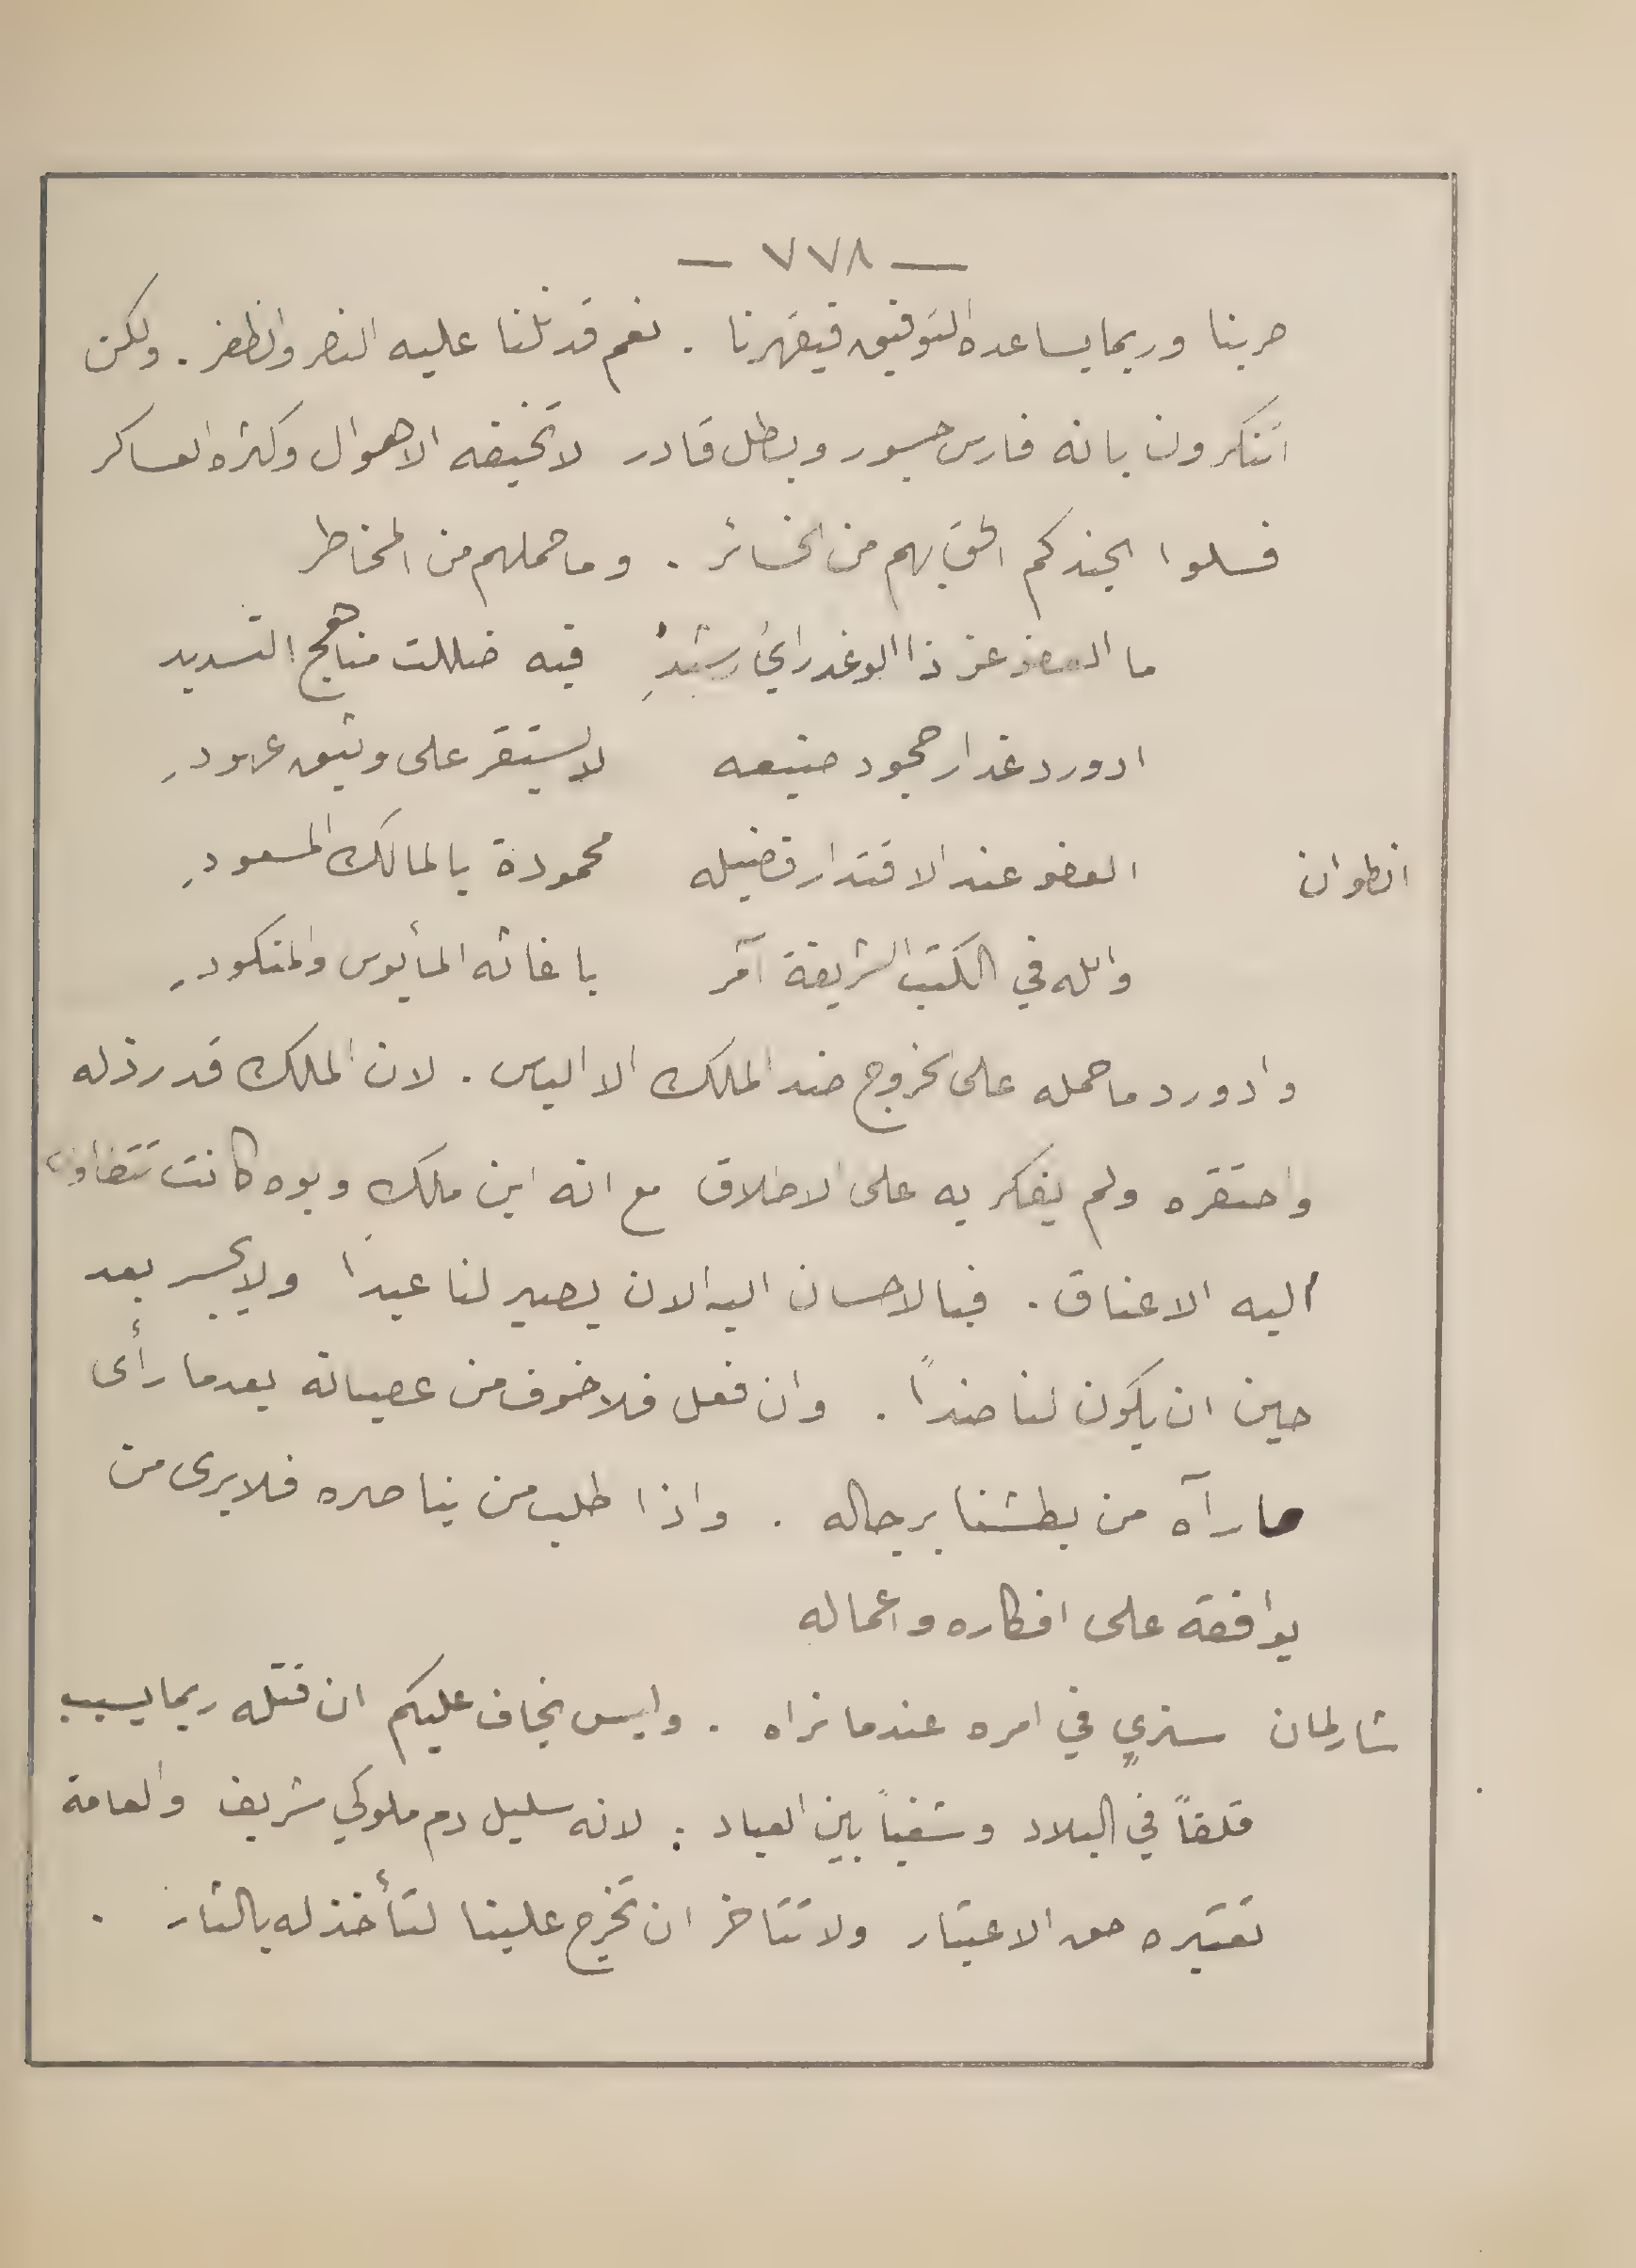 — ٧٧٨ —
حربنا وربما يساعده التوفيق فيقهرنا . نعم قد نلنا عليه النصر والظفر . ولكن
اتنكرون بانه فارس جسور وبطل قادر لا تخيفه الاهوال وكثره العساكر
فسلوا الجند كم الحق بهم من الخسائر . وما حملهم من المخاطر
ما العفو عن ذا الوغد رايُ رشيدِ فيه ضللت مناهج التسديد
ادورد غدار جحود صنيعه لا يستقر على وثيق عهودِ
انطوان العفو عند الاقتدار فضيله محمودة يا لمالك المسعودِ
والله في الكتب الشريفة آمر باغاثه المأيوس والمنكودِ
وادورد ما حمله على الخروج ضد الملك الا الياس . لان الملك قد رذله
واحتقره ولم يفكر به على الاطلاق مع انه ابن ملك وبوه كانت تتطاول
اليه الاعناق . فبالاحسان اليه الان يصير لنا عبدًا ولا يجسر بعد
حين ان يكون لنا ضداً . وان فعل فلا خوف من عصيانه بعدما رأى
ما رآه من بطشنا برجاله . واذا طلب من يناصره فلا يرى من
يوافقه على افكاره واعماله
شارلمان سنري في امره عندما نراه . وليس بخاف عليكم ان قتله ربما يسبب
قلقاً في البلاد وشغباً بين العباد : لانه سليل دم ملوكي شريف والعامة
تعتبره حق الاعتبار ولا تتاخر ان تخرج علينا لتأخذ له بالثار .